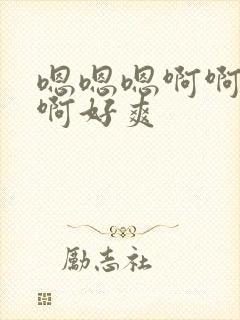 嗯嗯嗯啊啊
啊好爽
励志社